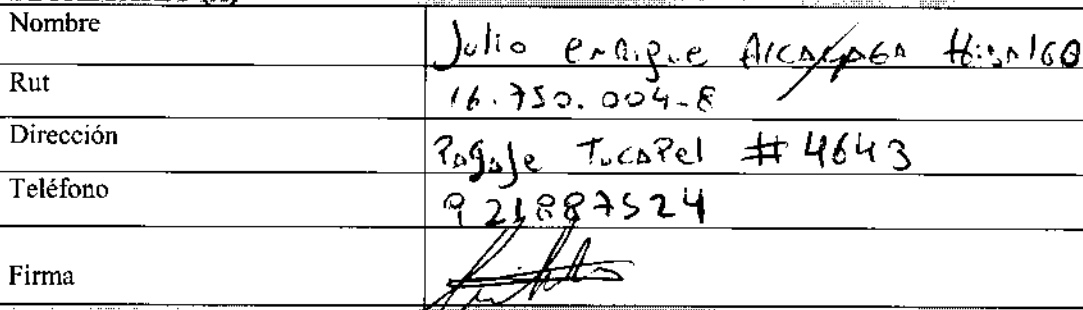 Nombre Julio enrique Alcayaga Hidalgo
Rut 16.750.004-8
Dirección Pasaje Tucapel # 4643
Teléfono 921887524
Firma